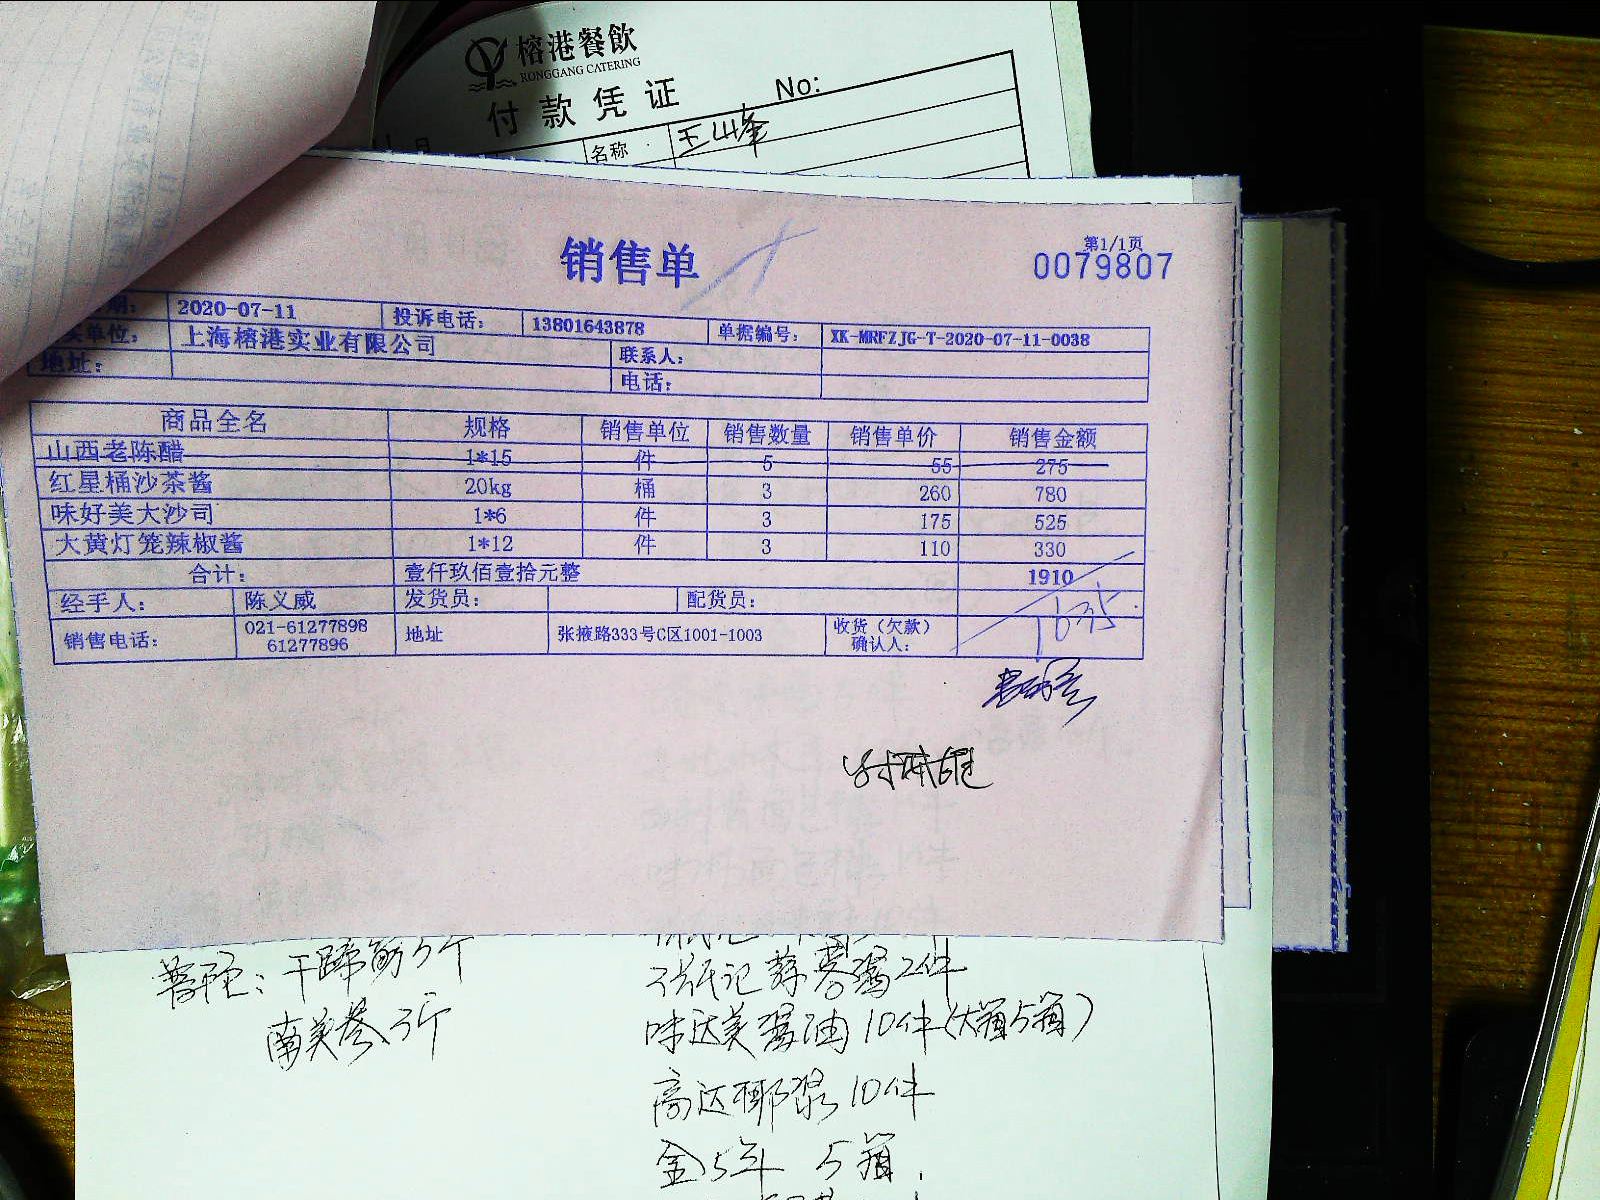 榕港餐飲
RONGGANG CATERING
付款凭证 No:
月 名称 王山峰
销售单 第1/1页
0079807
期： 2020-07-11 投诉电话： 13801643878 单据编号： XK-MRFZJG-T-2020-07-11-0038
买单位： 上海榕港实业有限公司 联系人：
地址： 电话：
商品全名 规格 销售单位 销售数量 销售单价 销售金额
山西老陈醋 1*15 件 5 55 275
红星桶沙茶酱 20kg 桶 3 260 780
味好美大沙司 1*6 件 3 175 525
大黄灯笼辣椒酱 1*12 件 3 110 330
合计： 壹仟玖佰壹拾元整 1910
经手人： 陈义威 发货员： 配货员： 1635
销售电话： 021-61277898 61277896 地址 张掖路333号C区1001-1003 收货（欠款）确认人：
普陀：干蹄筋5斤
南美参3斤
蒜蓉酱2件
味达美酱油10件（大箱5箱）
高达椰浆10件
金5年 5箱